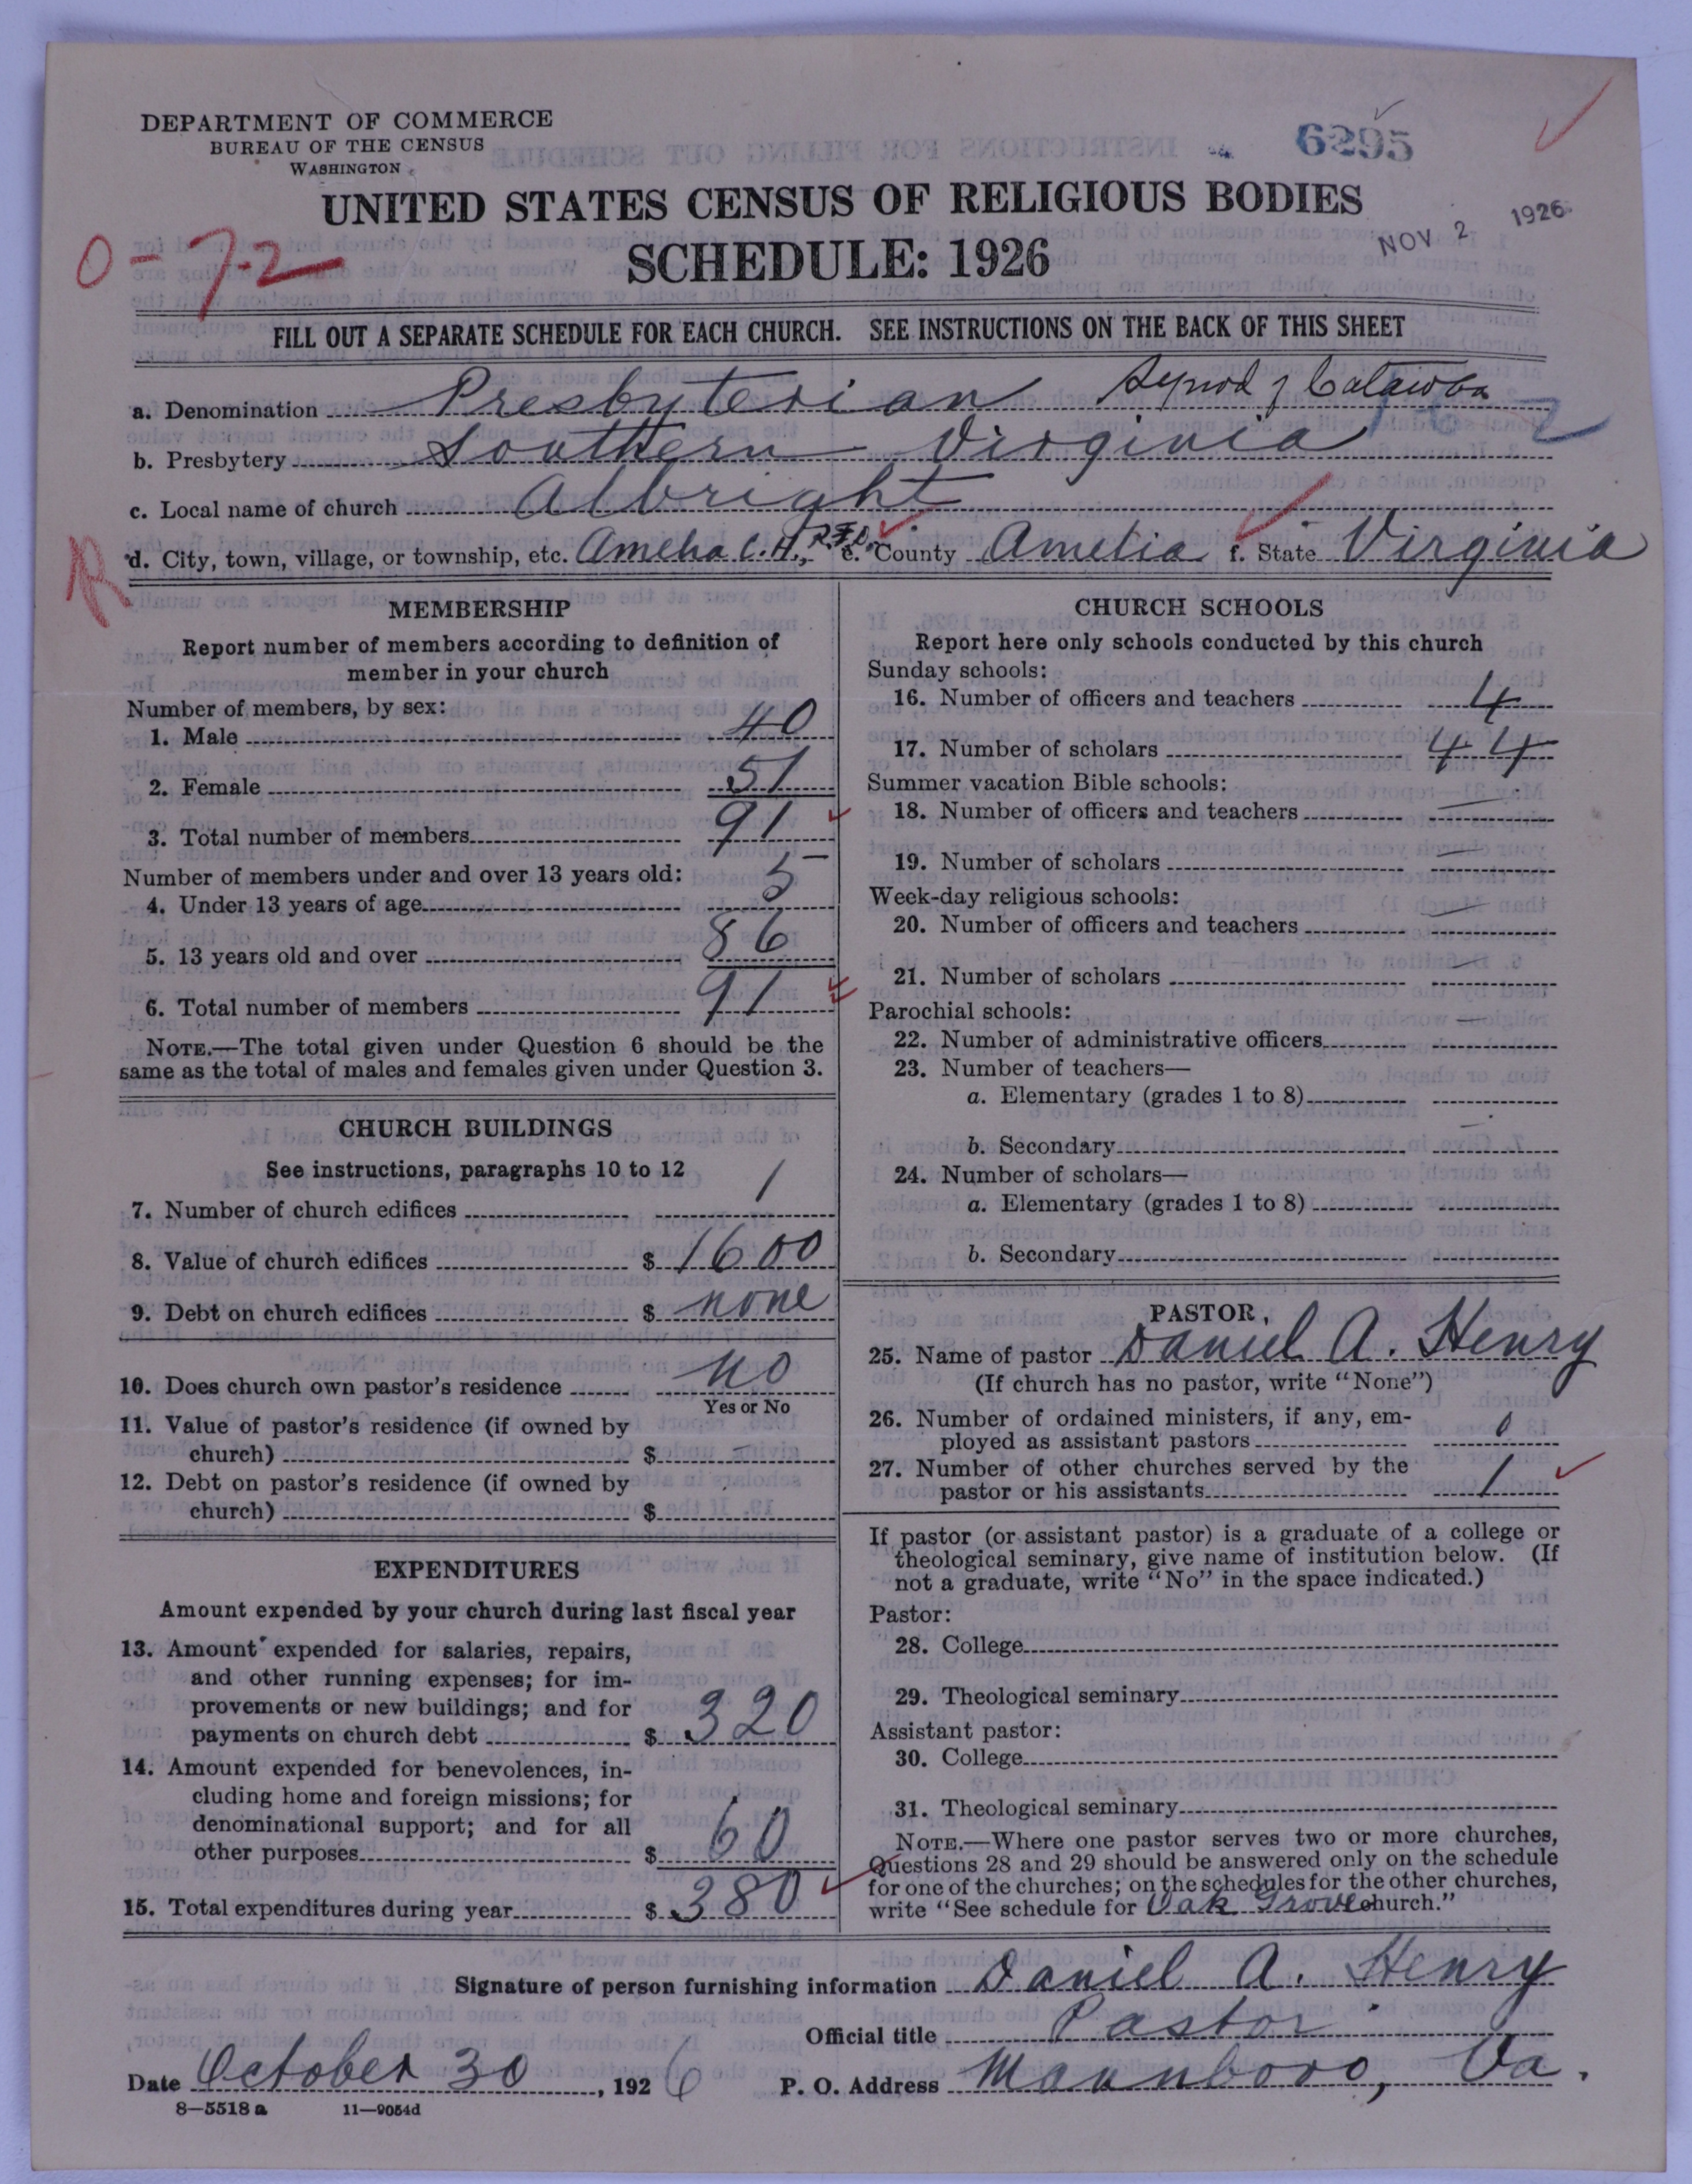 DEPARTMENT OF COMMERCE
BUREAU OF THE CENSUS
WASHINGTON
6295
UNITED STATES CENSUS OF RELIGIOUS BODIES
SCHEDULE: 1926
NOV 2 1926
0-72
FILL OUT A SEPARATE SCHEDULE FOR EACH CHURCH. SEE INSTRUCTIONS ON THE BACK OF THIS SHEET
a. Denomination Presbyterian Synod of Catawba
b. Presbytery Southern Virginia
c. Local name of church Albright
d. City, town, village, or township, etc. Amelia C.H., R.F.D. e. County Amelia f. State Virginia
R
MEMBERSHIP
Report number of members according to definition of
member in your church
Number of members, by sex:
1. Male 40
2. Female 51
3. Total number of members 91
Number of members under and over 13 years old:
4. Under 13 years of age 5
5. 13 years old and over 86
6. Total number of members 91
NOTE.—The total given under Question 6 should be the
same as the total of males and females given under Question 3.
CHURCH BUILDINGS
See instructions, paragraphs 10 to 12
7. Number of church edifices 1
8. Value of church edifices $ 1600
9. Debt on church edifices $ none
10. Does church own pastor's residence no
Yes or No
11. Value of pastor's residence (if owned by
church) $ —
12. Debt on pastor's residence (if owned by
church) $
EXPENDITURES
Amount expended by your church during last fiscal year
13. Amount expended for salaries, repairs,
and other running expenses; for im-
provements or new buildings; and for
payments on church debt $ 320
14. Amount expended for benevolences, in-
cluding home and foreign missions; for
denominational support; and for all
other purposes $ 60
15. Total expenditures during year $ 380
CHURCH SCHOOLS
Report here only schools conducted by this church
Sunday schools:
16. Number of officers and teachers 4
17. Number of scholars 44
Summer vacation Bible schools:
18. Number of officers and teachers —
19. Number of scholars —
Week-day religious schools:
20. Number of officers and teachers —
21. Number of scholars —
Parochial schools:
22. Number of administrative officers —
23. Number of teachers—
a. Elementary (grades 1 to 8)
b. Secondary
24. Number of scholars—
a. Elementary (grades 1 to 8)
b. Secondary
PASTOR
25. Name of pastor Daniel A. Henry
(If church has no pastor, write "None")
26. Number of ordained ministers, if any, em-
ployed as assistant pastors 0
27. Number of other churches served by the
pastor or his assistants 1
If pastor (or assistant pastor) is a graduate of a college or
theological seminary, give name of institution below. (If
not a graduate, write "No" in the space indicated.)
Pastor:
28. College
29. Theological seminary
Assistant pastor:
30. College
31. Theological seminary
NOTE.—Where one pastor serves two or more churches,
Questions 28 and 29 should be answered only on the schedule
for one of the churches; on the schedules for the other churches,
write "See schedule for Oak Grove church."
Signature of person furnishing information Daniel A. Henry
Official title Pastor
Date October 30, 1926 P. O. Address Mannboro, Va.
8—5518a 11—9054d